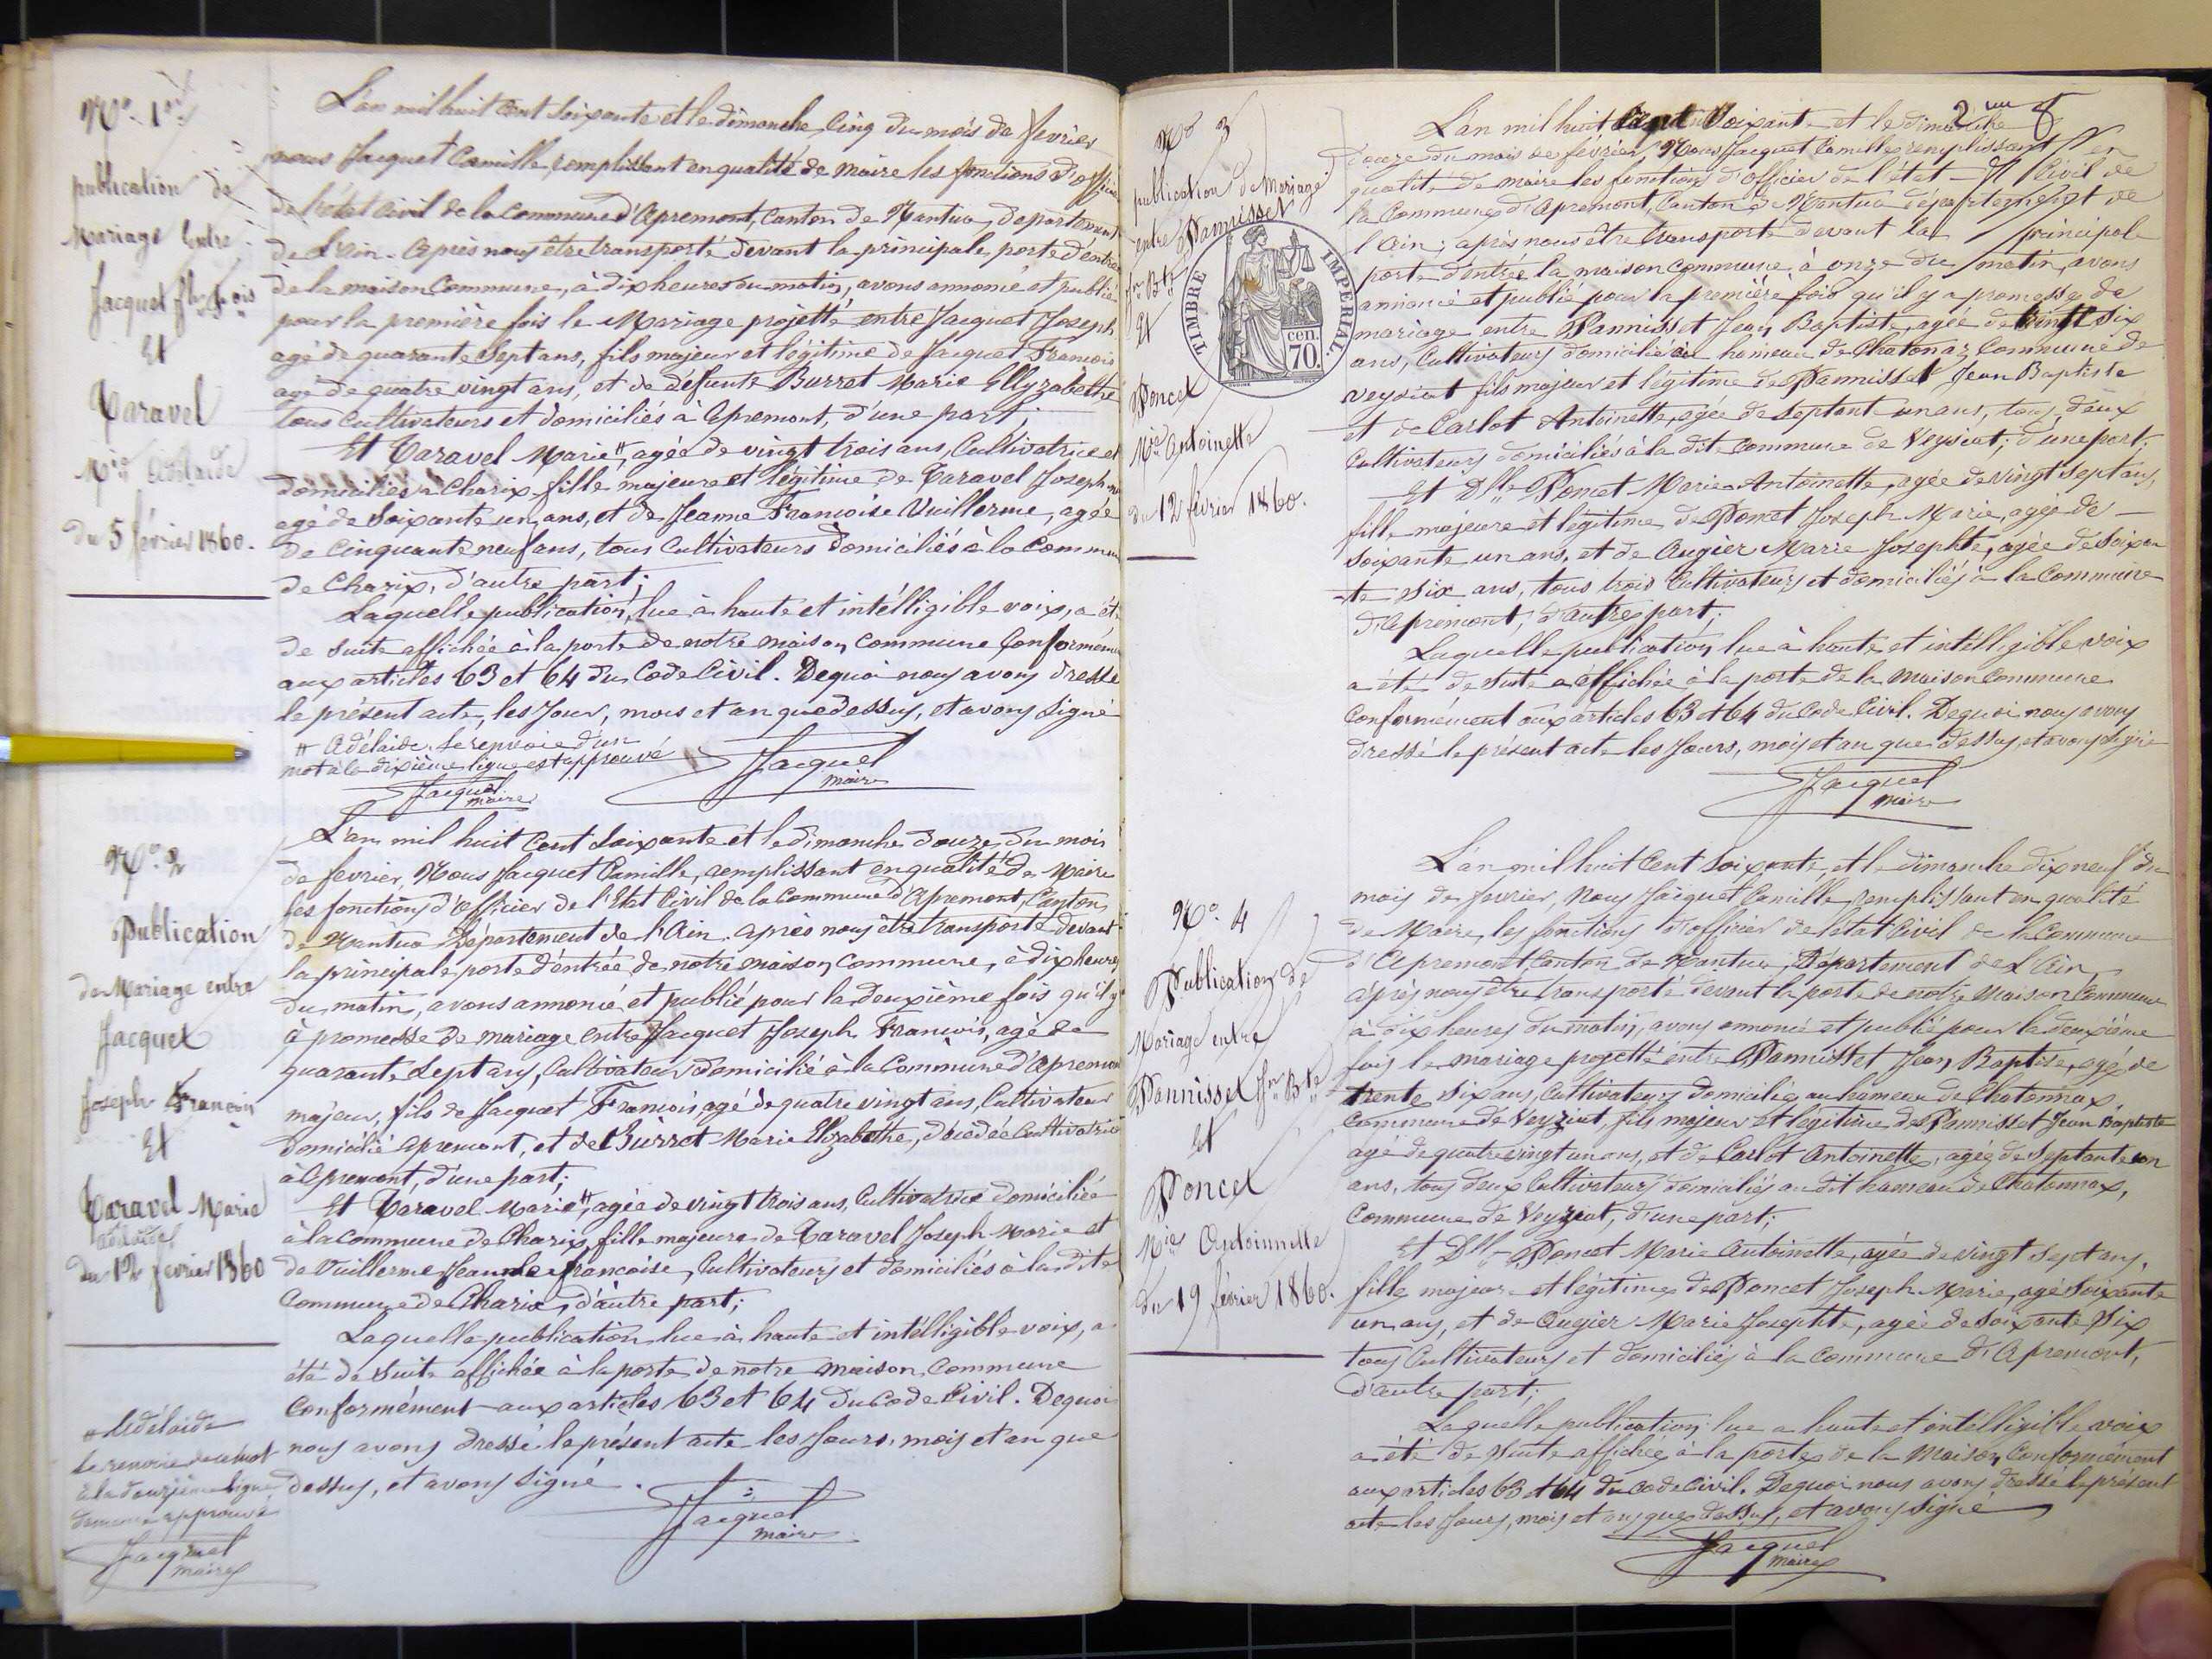 Nº 1er
publication de
Mariage Entre
Jacquet Jh Fois
Et
Caravel
Mie Adelaide
du 5 février 1860.
L'an mil huit Cent Soixante et le dimanche Cinq du mois de fevrier
nous Jacquet Camille remplissant en qualité de Maire les fonctions d'officier
de l'état Civil de la Commune d'Apremont, Canton de Nantua, departement
de L'Ain. Après nous être transporté devant la principale porte d'entrée
de la maison Commune, à dix heures du matin, avons annoncé et publié
pour la première fois le Mariage projetté entre Jacquet Joseph
agé de quarante Sept ans, fils majeur et légitime de Jacquet Francois
agé de quatre vingt ans, et de défunte Burret Marie Ellyzabethe
tous Cultivateurs et domiciliés à Apremont, d'une part;
Et Caravel Marie # agée de vingt trois ans, Cultivatrice et
domiciliée à Charix, fille majeure et légitime de Caravel Joseph
agé de Soixante un ans, et de Jeanne Francoise Vuillerme, agée
de Cinquante neuf ans, tous Cultivateurs domiciliés à la Commune
de Charix, d'autre part;
Laquelle publication, lue à haute et intélligible voix, a été
de suite affichée à la porte de notre maison Commune Conformément
aux articles 63 et 64 du Code Civil. Dequoi nous avons dressé
le présent acte, les Jour, mois et an que dessus, et avons Signé
# Adélaide. Le renvoie d'un
mot à la dixième ligne est approuvé
Jacquet
maire
Jacquet
maire
Nº 2
Publication
de Mariage entre
Jacquet
Joseph Francois
Et
Caravel Marie
adelaide
du 12 fevrier 1860
L'an mil huit Cent Soixante et le dimanche douze du mois
de fevrier, Nous Jacquet Camille, remplissant en qualité de Maire
les fonctions d'Officier de l'Etat Civil de la Commune d'Apremont, Canton
de Nantua Département de l'Ain. après nous être transporté devant
la principale porte d'entrée de notre maison Commune, à dix heures
du matin, avons annoncé et publié pour la deuxième fois qu'il y
à promesse de mariage entre Jacquet Joseph Francois, agé de
quarante Sept ans, Cultivateur domicilié à la Commune d'Apremont
majeur, fils de Jacquet Francois, agé de quatre vingt ans, Cultivateur
domicilié apremont, et de Burret Marie Elizabethe, décedée Cultivatrice
à Apremont, d'une part;
Et Caravel Marie #, agée de vingt trois ans, Cultivatrice domiciliée
à la Commune de Charix, fille majeure de Caravel Joseph Marie et
de Vuillerme Jeanne francoise, Cultivateurs et domiciliés à la dite
Commune de Charix, d'autre part;
Laquelle publication lue à haute et intélligible voix, a
été de Suite affichée à la porte de notre maison Commune
Conformément aux articles 63 et 64 du Code Civil. Dequoi
nous avons dressé le présent acte les Jours, mois et an que
dessus, et avons Signé.
Jacquet
maire
# Adélaide
Le renvoie de ce mot
à la douzième ligne
demeure approuvé
Jacquet
maire
2me 8
Nº 3
publication de Mariage
entre Pannisset
Jn Bte
Et
Poncet
Mie Antoinette
du 12 février 1860.
TIMBRE IMPERIAL.
70. cen.
L'an mil huit Cent Soixante et le dimanche
douze du mois de fevrier, Nous Jacquet Camille remplissant en
qualité de maire les fonctions d'officier de l'état Civil de
la Commune d'Apremont, Canton de Nantua département de
l'Ain; après nous être transporté devant la principale
porte d'entrée la maison commune, à onze du matin, avons
annoncé et publié pour la première fois qu'il y a promesse de
mariage entre Pannisset Jean Baptiste, agée de vingt Six
ans, Cultivateurs domicilié au hameau de Chatonax Commune de
veyziat fils majeur et légitime de Pannisset Jean Baptiste
et de Carlot Antoinette, agée de Septant un ans, tous deux
Cultivateurs domiciliés à la dite Commune de Veyziat; d'une part;
Et Dlle Poncet Marie Antoinette, agée de vingt Sept ans,
fille majeure et légitime de Poncet Joseph Marie, agée de —
Soixante un ans, et de Augier Marie Josephte, agée de Soixan
-te Six ans, tous trois Cultivateurs et domiciliés à la Commune
d'Apremont, d'autre part;
Laquelle publication lue à haute et intélligible voix
a été de Suite a affichée à la porte de la Maison Commune
Conformément aux articles 63 et 64 du Code Civil. Dequoi nous avons
dressé le présent acte les Jours, mois et an que dessus, et avons Signé
Jacquet
maire
Nº 4
Publication de
Mariage entre
Pannisset Jn Bte
Et
Poncet
Mie Antoinnette
du 19 février 1860.
L'an mil huit Cent Soixante, et le dimanche dix neuf du
mois de fevrier, Nous Jacquet Camille remplissant en qualité
de Maire, les fonctions d'officier de letat Civil de la Commune
d'Apremont, Canton de Nantua, Département de L'Ain,
après nous être transporté devant la porte de notre Maison Commune
à dix heures du matin, avons annoncé et publié pour la deuxième
fois le mariage projetté entre Pannisset Jean Baptise, agé de
trente Six ans, Cultivateurs domicilié au hameau de Chatonnax,
Commune de Veyziat, fils majeur et legitime de Pannisset Jean Baptiste
agé de quatre vingt un ans, et de Carlot Antoinette, agée de Septante un
ans, tous deux Cultivateurs domiciliés au dit hameau de Chatonnax,
Commune de Veyziat, d'une part;
Et Dlle Poncet Marie Antoinette, agée de vingt Sept ans,
fille majeur et légitime de Poncet Joseph Marie, agé Soixante
un ans, et de Augier Marie Josephte, agée de Soixante Six
tous Cultivateurs et domiciliés à la Commune d'Apremont,
d'autre part;
Laquelle publication lue a haute et intélligible voix
a été de Suite affichée à la porte de la Maison, Conformément
aux articles 63 et 64 du Code Civil. Dequoi nous avons dressé le présent
acte les Jours, mois et an que dessus, et avons Signé
Jacquet
maire